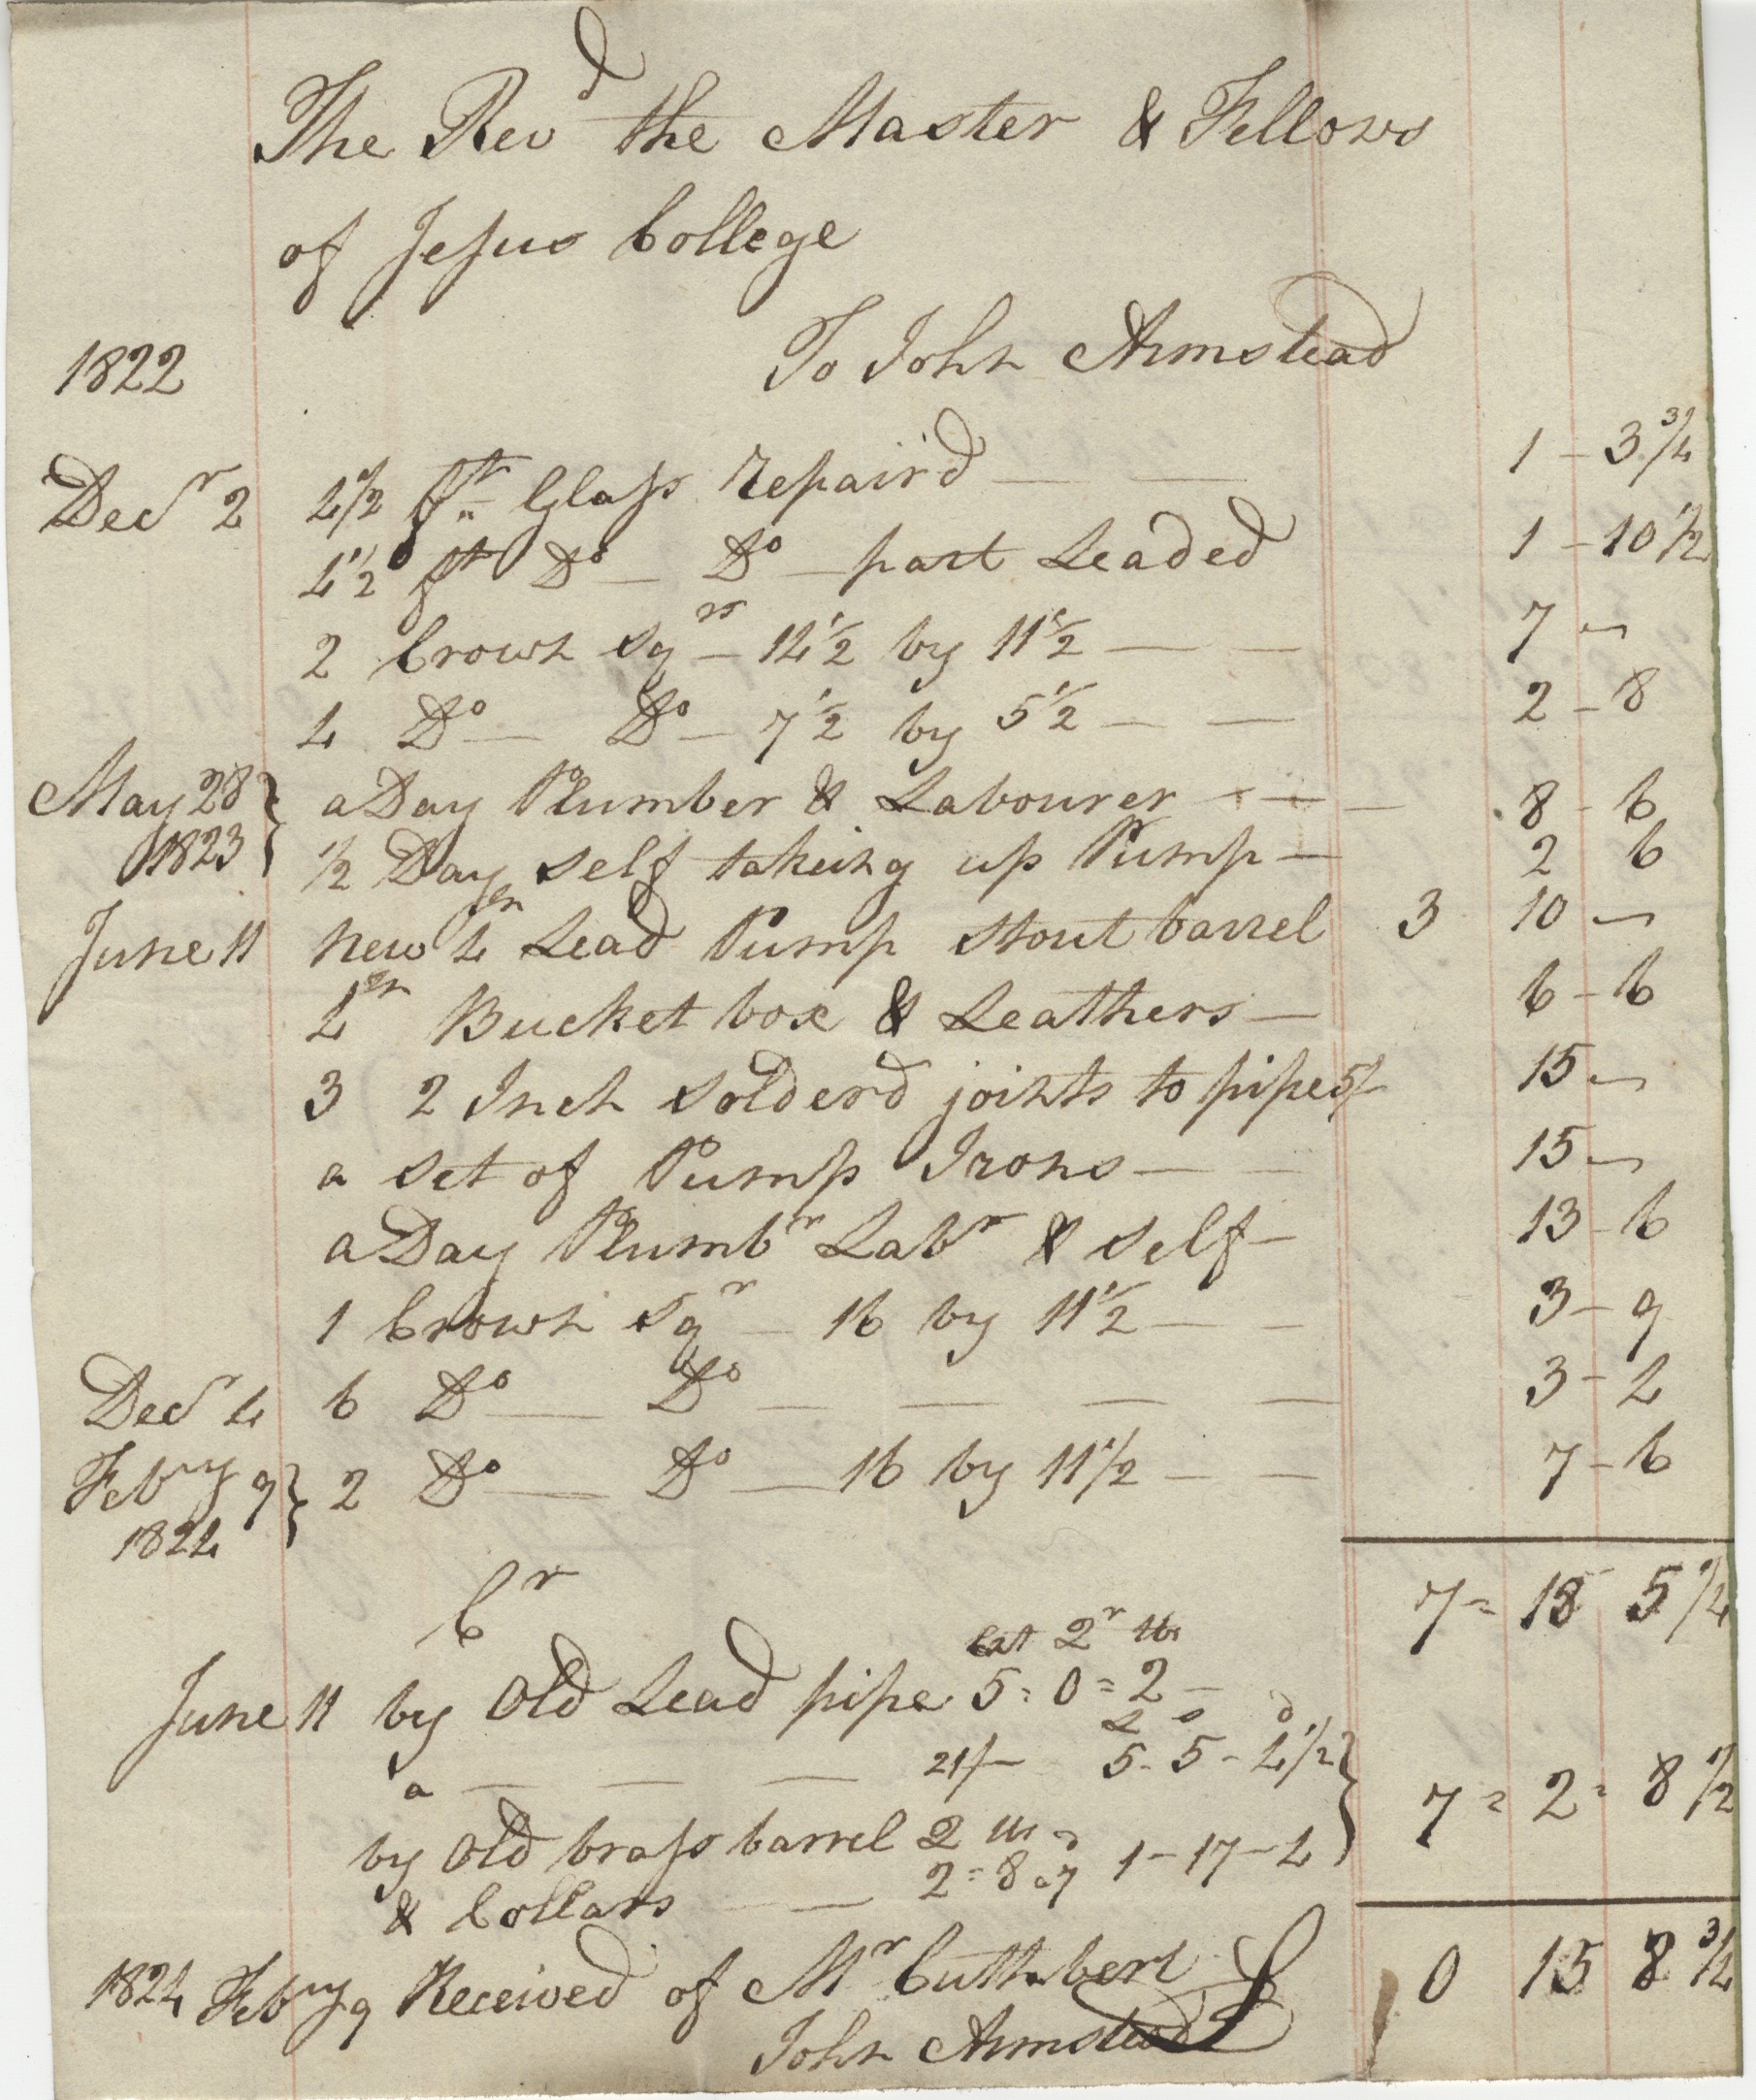 The Revd the Master & Fellows
of Jesus College
To John Armstead
1822
Decr 2 4 1/2 ft Glass repair'd — — 1 - 3 3/4
4 1/2 ft Do — Do — part Leaded 1 - 10 1/2
2 Crown sqrs — 14 1/2 by 11 1/2 — — 7 -
4 Do — Do — 7 1/2 by 5 1/2 — — 2 - 8
May 28 } a Day Plumber & Labourer — — 8 - 6
1823 } 1/2 Day self takeing up Pump — 2 6
June 11 new 4 In Lead Pump stout barrel 3 10 -
4 In Bucket box & Leathers — 6 - 6
3 2 Inch solderd joints to pipe 5/- 15 -
a set of Pump Irons — — 15 -
a Day Plumbr Labr & self — 13 - 6
1 Crown sqr — 16 by 11 1/2 — — 3 - 9
Decr 4 6 Do — Do — — — — 3 - 4
Febry 9 } 2 Do — Do — 16 by 11 1/2 — — 7 - 6
1824
7 = 18 5 1/4
Cr
Cwt Qr lb
June 11 by Old Lead pipe 5 = 0 = 2 —
£ s d
a — — — 21/- 5 - 5 - 4 1/2 }
7 = 2 = 8 1/2
by Old brass barrel Q lb d
& Collars — — 2 = 8 7 1 - 17 - 4
0 15 8 3/4
1824 Febry 9 Received of Mr Cuthbert
John Armstead